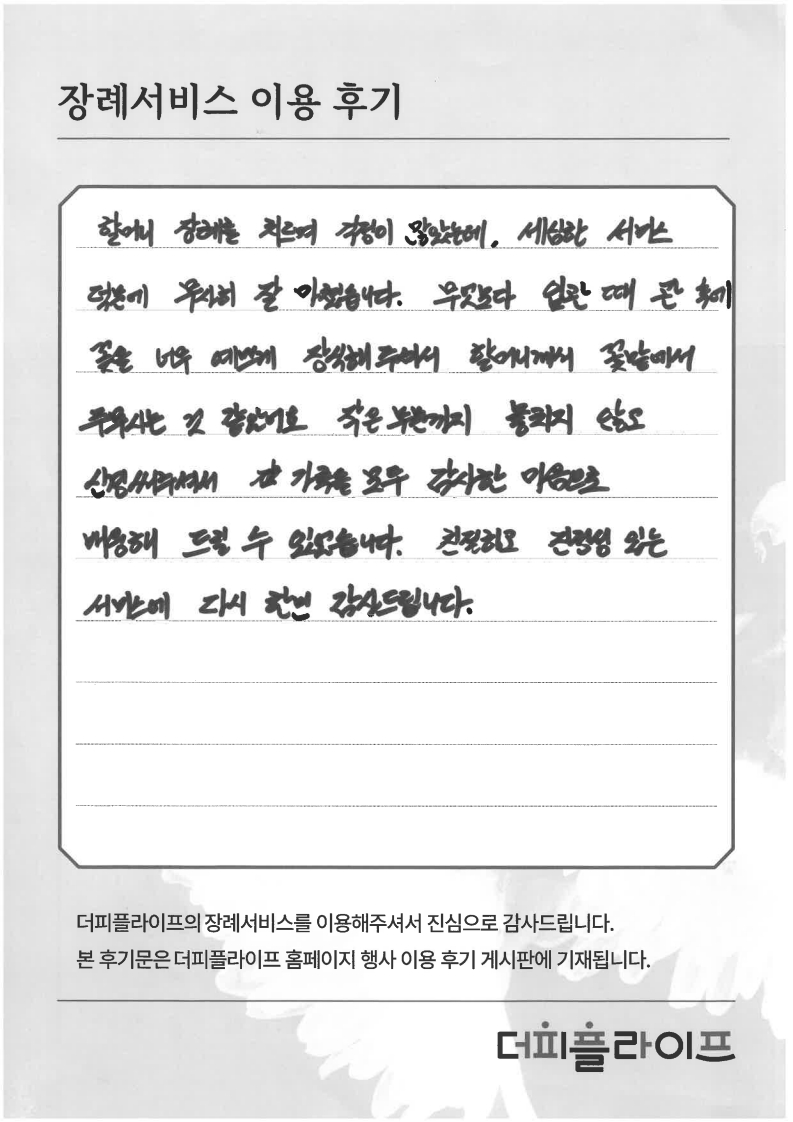 장례서비스 이용 후기
할머니 장례를 치르며 걱정이 많았는데, 세심한 서비스
덕분에 무사히 잘 마쳤습니다. 무엇보다 입관 때 관 속에
꽃을 너무 예쁘게 장식해주셔서 할머니께서 꽃밭에서
주무시는 것 같았어요 작은 부분까지 놓치지 않고
신경써주셔서 온 가족을 모두 감사한 마음으로
배웅해 드릴 수 있었습니다. 친절하고 진정성 있는
서비스에 다시 한번 감사드립니다.
더피플라이프의 장례서비스를 이용해주셔서 진심으로 감사드립니다.
본 후기문은 더피플라이프 홈페이지 행사 이용 후기 게시판에 기재됩니다.
더피플라이프